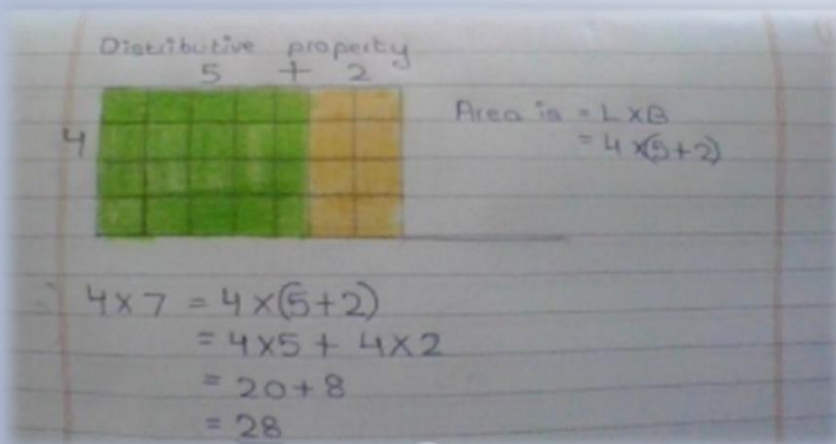 Distributive property
5 + 2
4
Area is = L x B
= 4 x(5+2)
4 x 7 = 4 x (5+2)
= 4x5 + 4x2
= 20+8
= 28